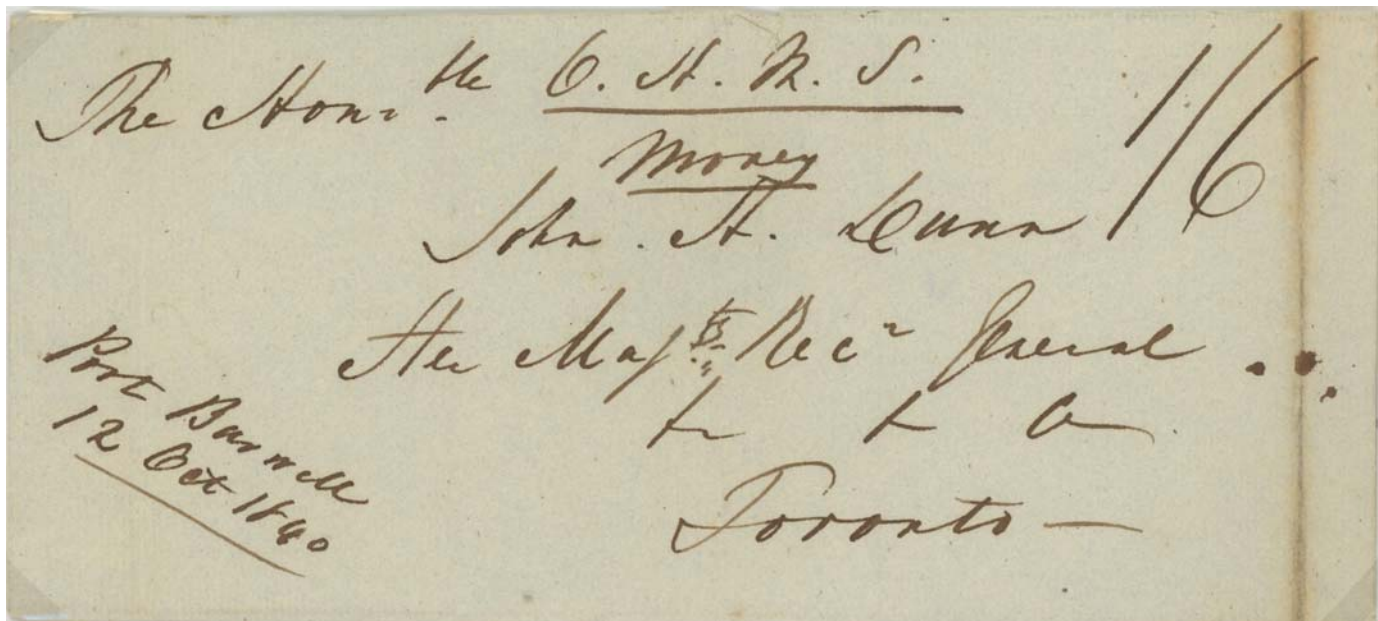 The Honble O. H. M. S.
Money
1/6
John. H. Dunn
Her Majts Recr General
& & &c
Toronto —
Port Burwell
12 Oct 1840